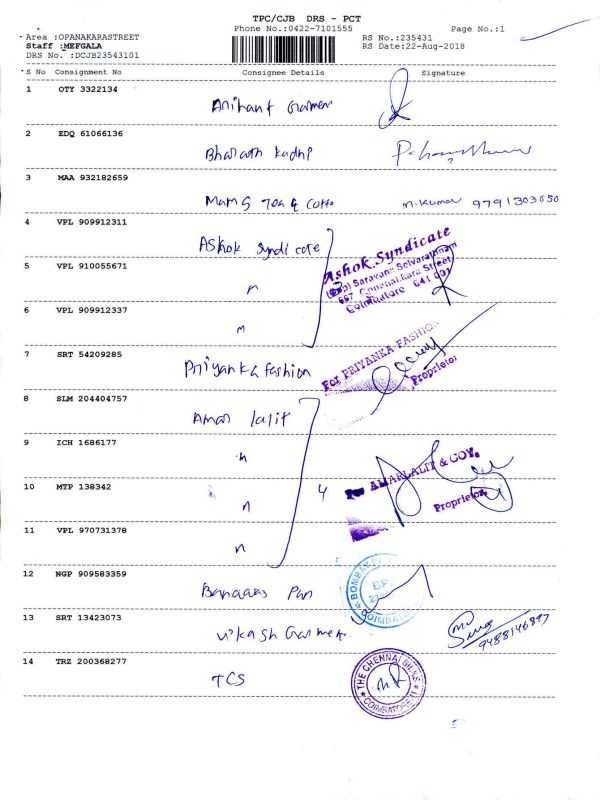 TPC/CJB DRS - PCT
Phone No.:0422-7101555 Page No.:1
Area :OPANAKARASTREET RS No.:235431
Staff :MEFGALA RS Date:22-Aug-2018
DRS No. :DCJB23543101
S No Consignment No Consignee Details Signature
1 OTY 3322134
Arihant Garmen
2 EDQ 61066136
Bharath Kadhi
3 MAA 932182659
Mams Tex & Cotto m.Kumar 9791303650
4 VPL 909912311
Ashok Syndicate
Ashok Syndicate
Saravana Selvarathinam
667, Oppanakkara Street
Coimbatore 641 001
5 VPL 910055671
"
6 VPL 909912337
"
7 SRT 54209285
Priyanka fashion
For PRIYANKA FASHION
Proprietor
8 SLM 204404757
Amar lalit
9 ICH 1686177
"
10 MTP 138342
" 4
For AMARLALIT & COY.
Proprietor
11 VPL 970731378
"
12 NGP 909583359
Banaras Pan
BOMBAY
COIMBATORE
13 SRT 13423073
Vikash Garment
9488146897
14 TRZ 200368277
TCS
THE CHENNAI SILKS
COIMBATORE